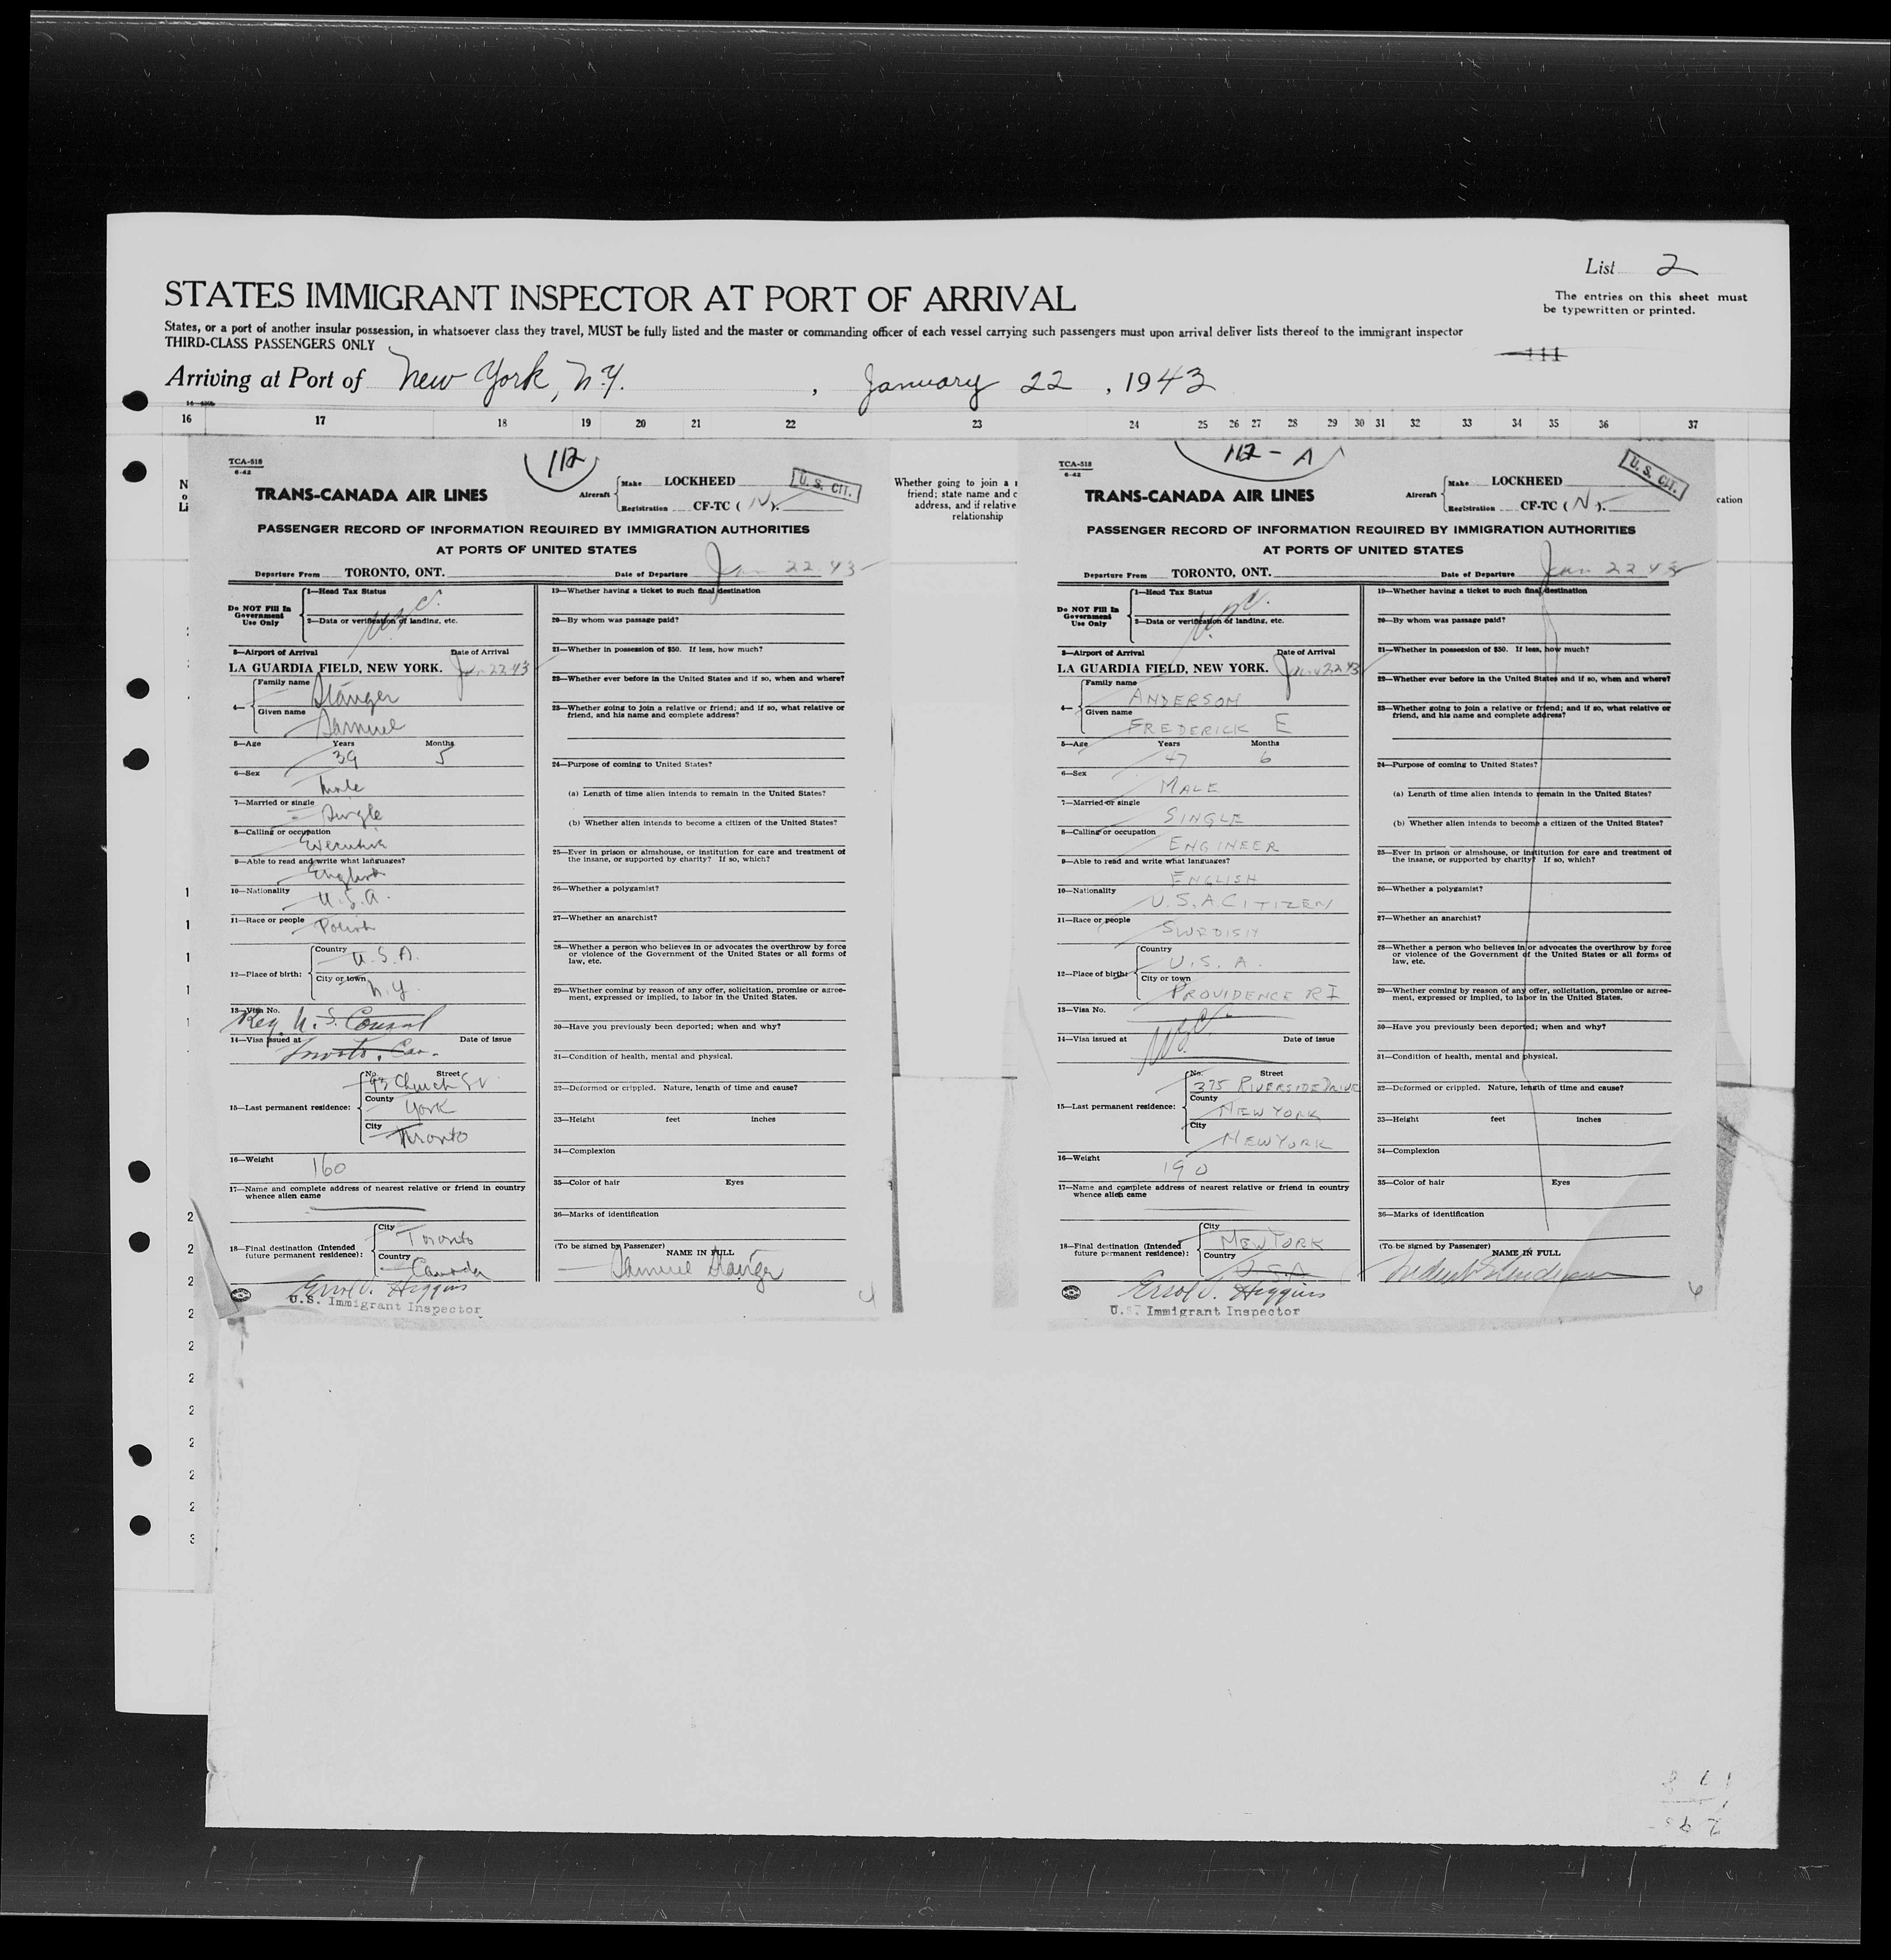 List 2
STATES IMMIGRANT INSPECTOR AT PORT OF ARRIVAL
The entries on this sheet must
be typewritten or printed.
States, or a port of another insular possession, in whatsoever class they travel, MUST be fully listed and the master or commanding officer of each vessel carrying such passengers must upon arrival deliver lists thereof to the immigrant inspector
THIRD-CLASS PASSENGERS ONLY
111
Arriving at Port of New York, N.Y. , January 22 , 1943
16 17 18 19 20 21 22 23 24 25 26 27 28 29 30 31 32 33 34 35 36 37
Whether going to join a
friend; state name and c
address, and if relative
relationship
cation
112
TCA-518
6-42
TRANS-CANADA AIR LINES
Aircraft
Make LOCKHEED
Registration CF-TC (N).
U. S. CIT.
PASSENGER RECORD OF INFORMATION REQUIRED BY IMMIGRATION AUTHORITIES
AT PORTS OF UNITED STATES
Departure From TORONTO, ONT. Date of Departure Jan 22 43
Do NOT Fill In
Government
Use Only
1—Head Tax Status
USC.
2—Data or verification of landing, etc.
3—Airport of Arrival Date of Arrival
LA GUARDIA FIELD, NEW YORK. Jan 22 43
4— Family name Stanger
Given name Samuel
5—Age Years 39 Months 5
6—Sex Male
7—Married or single Single
8—Calling or occupation Executive
9—Able to read and write what languages? English
10—Nationality U.S.A.
11—Race or people Polish
12—Place of birth: Country U.S.A.
City or town N.Y.
13—Visa No. Reg. U.S. Consul
14—Visa issued at Toronto, Can. Date of issue
15—Last permanent residence: No. Street 93 Church St
County York
City Toronto
16—Weight 160
17—Name and complete address of nearest relative or friend in country
whence alien came
18—Final destination (Intended
future permanent residence):
City Toronto
Country Canada
Errol J. Higgins
U.S. Immigrant Inspector
19—Whether having a ticket to such final destination
20—By whom was passage paid?
21—Whether in possession of $50. If less, how much?
22—Whether ever before in the United States and if so, when and where?
23—Whether going to join a relative or friend; and if so, what relative or
friend, and his name and complete address?
24—Purpose of coming to United States?
(a) Length of time alien intends to remain in the United States?
(b) Whether alien intends to become a citizen of the United States?
25—Ever in prison or almshouse, or institution for care and treatment of
the insane, or supported by charity? If so, which?
26—Whether a polygamist?
27—Whether an anarchist?
28—Whether a person who believes in or advocates the overthrow by force
or violence of the Government of the United States or all forms of
law, etc.
29—Whether coming by reason of any offer, solicitation, promise or agree-
ment, expressed or implied, to labor in the United States.
30—Have you previously been deported; when and why?
31—Condition of health, mental and physical.
32—Deformed or crippled. Nature, length of time and cause?
33—Height feet inches
34—Complexion
35—Color of hair Eyes
36—Marks of identification
(To be signed by Passenger) NAME IN FULL
Samuel Stanger
4
112-A
TCA-518
6-42
TRANS-CANADA AIR LINES
Aircraft
Make LOCKHEED
Registration CF-TC (N).
U. S. CIT.
PASSENGER RECORD OF INFORMATION REQUIRED BY IMMIGRATION AUTHORITIES
AT PORTS OF UNITED STATES
Departure From TORONTO, ONT. Date of Departure Jan 22 43
Do NOT Fill In
Government
Use Only
1—Head Tax Status
USC.
2—Data or verification of landing, etc.
3—Airport of Arrival Date of Arrival
LA GUARDIA FIELD, NEW YORK. Jan 22 43
4— Family name ANDERSON
Given name FREDERICK E
5—Age Years 47 Months 6
6—Sex MALE
7—Married or single SINGLE
8—Calling or occupation ENGINEER
9—Able to read and write what languages? ENGLISH
10—Nationality U.S.A. CITIZEN
11—Race or people SWEDISH
12—Place of birth: Country U.S.A.
City or town PROVIDENCE RI
13—Visa No. USC.
14—Visa issued at Date of issue
15—Last permanent residence: No. Street 375 RIVERSIDE DRIVE
County NEW YORK
City NEW YORK
16—Weight 190
17—Name and complete address of nearest relative or friend in country
whence alien came
18—Final destination (Intended
future permanent residence):
City NEW YORK
Country U.S.A
Errol J. Higgins
U.S. Immigrant Inspector
19—Whether having a ticket to such final destination
20—By whom was passage paid?
21—Whether in possession of $50. If less, how much?
22—Whether ever before in the United States and if so, when and where?
23—Whether going to join a relative or friend; and if so, what relative or
friend, and his name and complete address?
24—Purpose of coming to United States?
(a) Length of time alien intends to remain in the United States?
(b) Whether alien intends to become a citizen of the United States?
25—Ever in prison or almshouse, or institution for care and treatment of
the insane, or supported by charity? If so, which?
26—Whether a polygamist?
27—Whether an anarchist?
28—Whether a person who believes in or advocates the overthrow by force
or violence of the Government of the United States or all forms of
law, etc.
29—Whether coming by reason of any offer, solicitation, promise or agree-
ment, expressed or implied, to labor in the United States.
30—Have you previously been deported; when and why?
31—Condition of health, mental and physical.
32—Deformed or crippled. Nature, length of time and cause?
33—Height feet inches
34—Complexion
35—Color of hair Eyes
36—Marks of identification
(To be signed by Passenger) NAME IN FULL
Frederick E Anderson
6